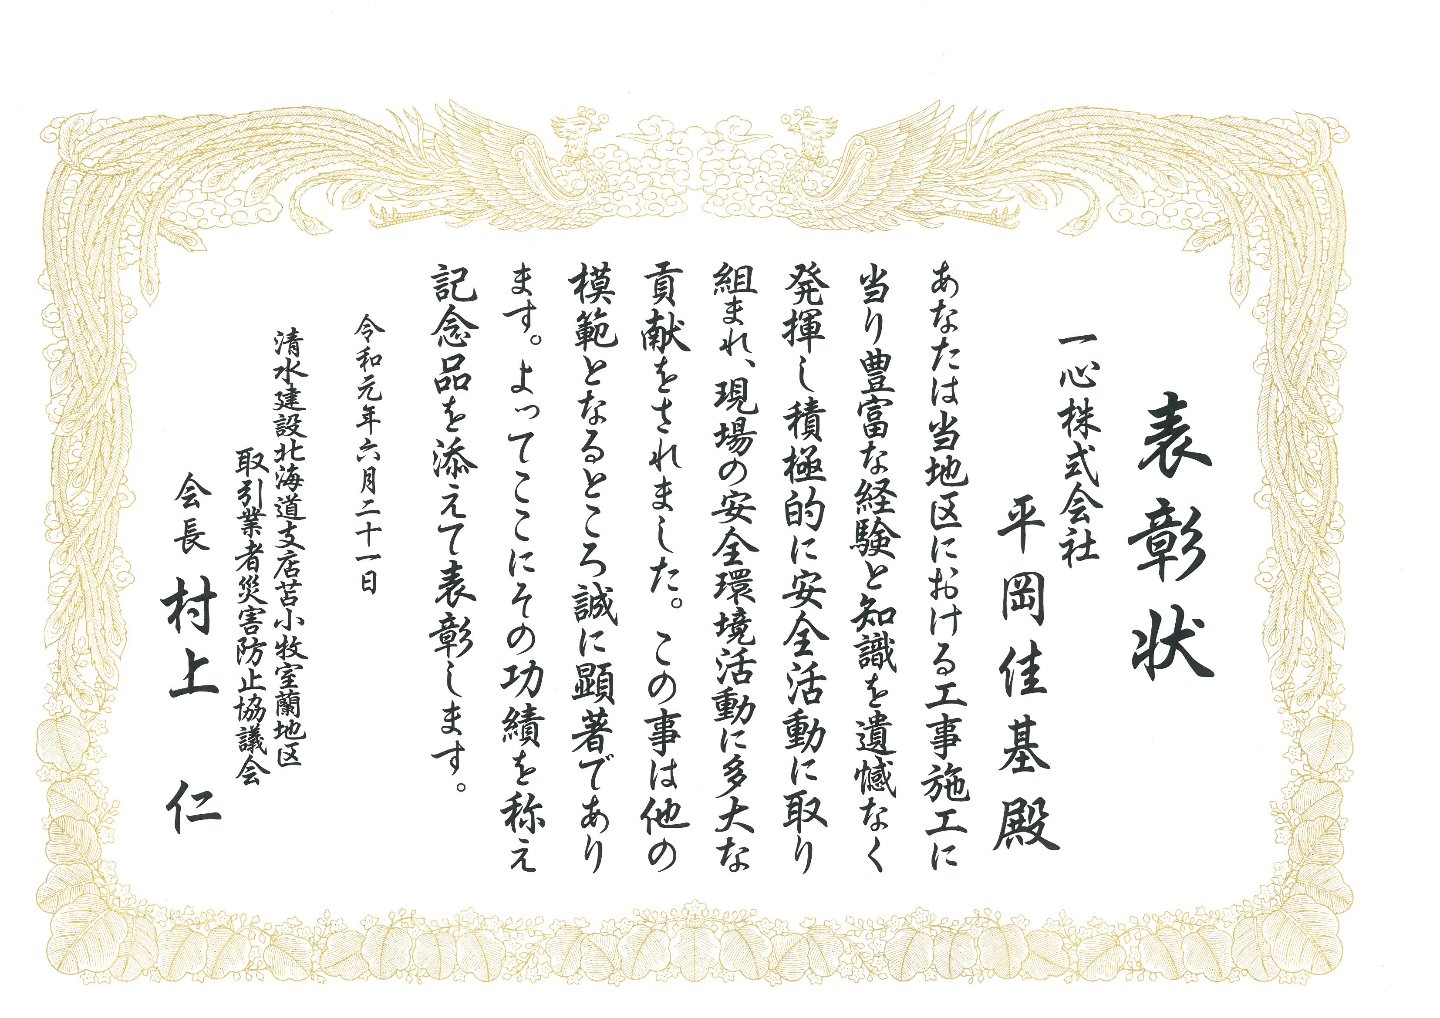 表彰状
一心株式会社
平岡佳基殿
あなたは当地区における工事施工に
当り豊富な経験と知識を遺憾なく
発揮し積極的に安全活動に取り
組まれ、現場の安全環境活動に多大な
貢献をされました。この事は他の
模範となるところ誠に顕著であり
ます。よってここにその功績を称え
記念品を添えて表彰します。
令和元年六月二十一日
清水建設北海道支店苫小牧室蘭地区
取引業者災害防止協議会
会長 村上 仁